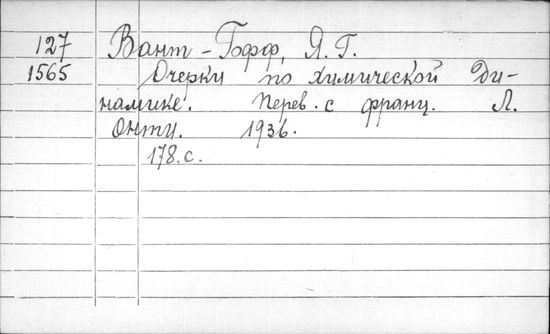 127 Вант-Гофф, Я. Г.
1565 Очерки по химической Ди-
намике. Перев. с франц. Л.
Онти. 1936.
178.с.